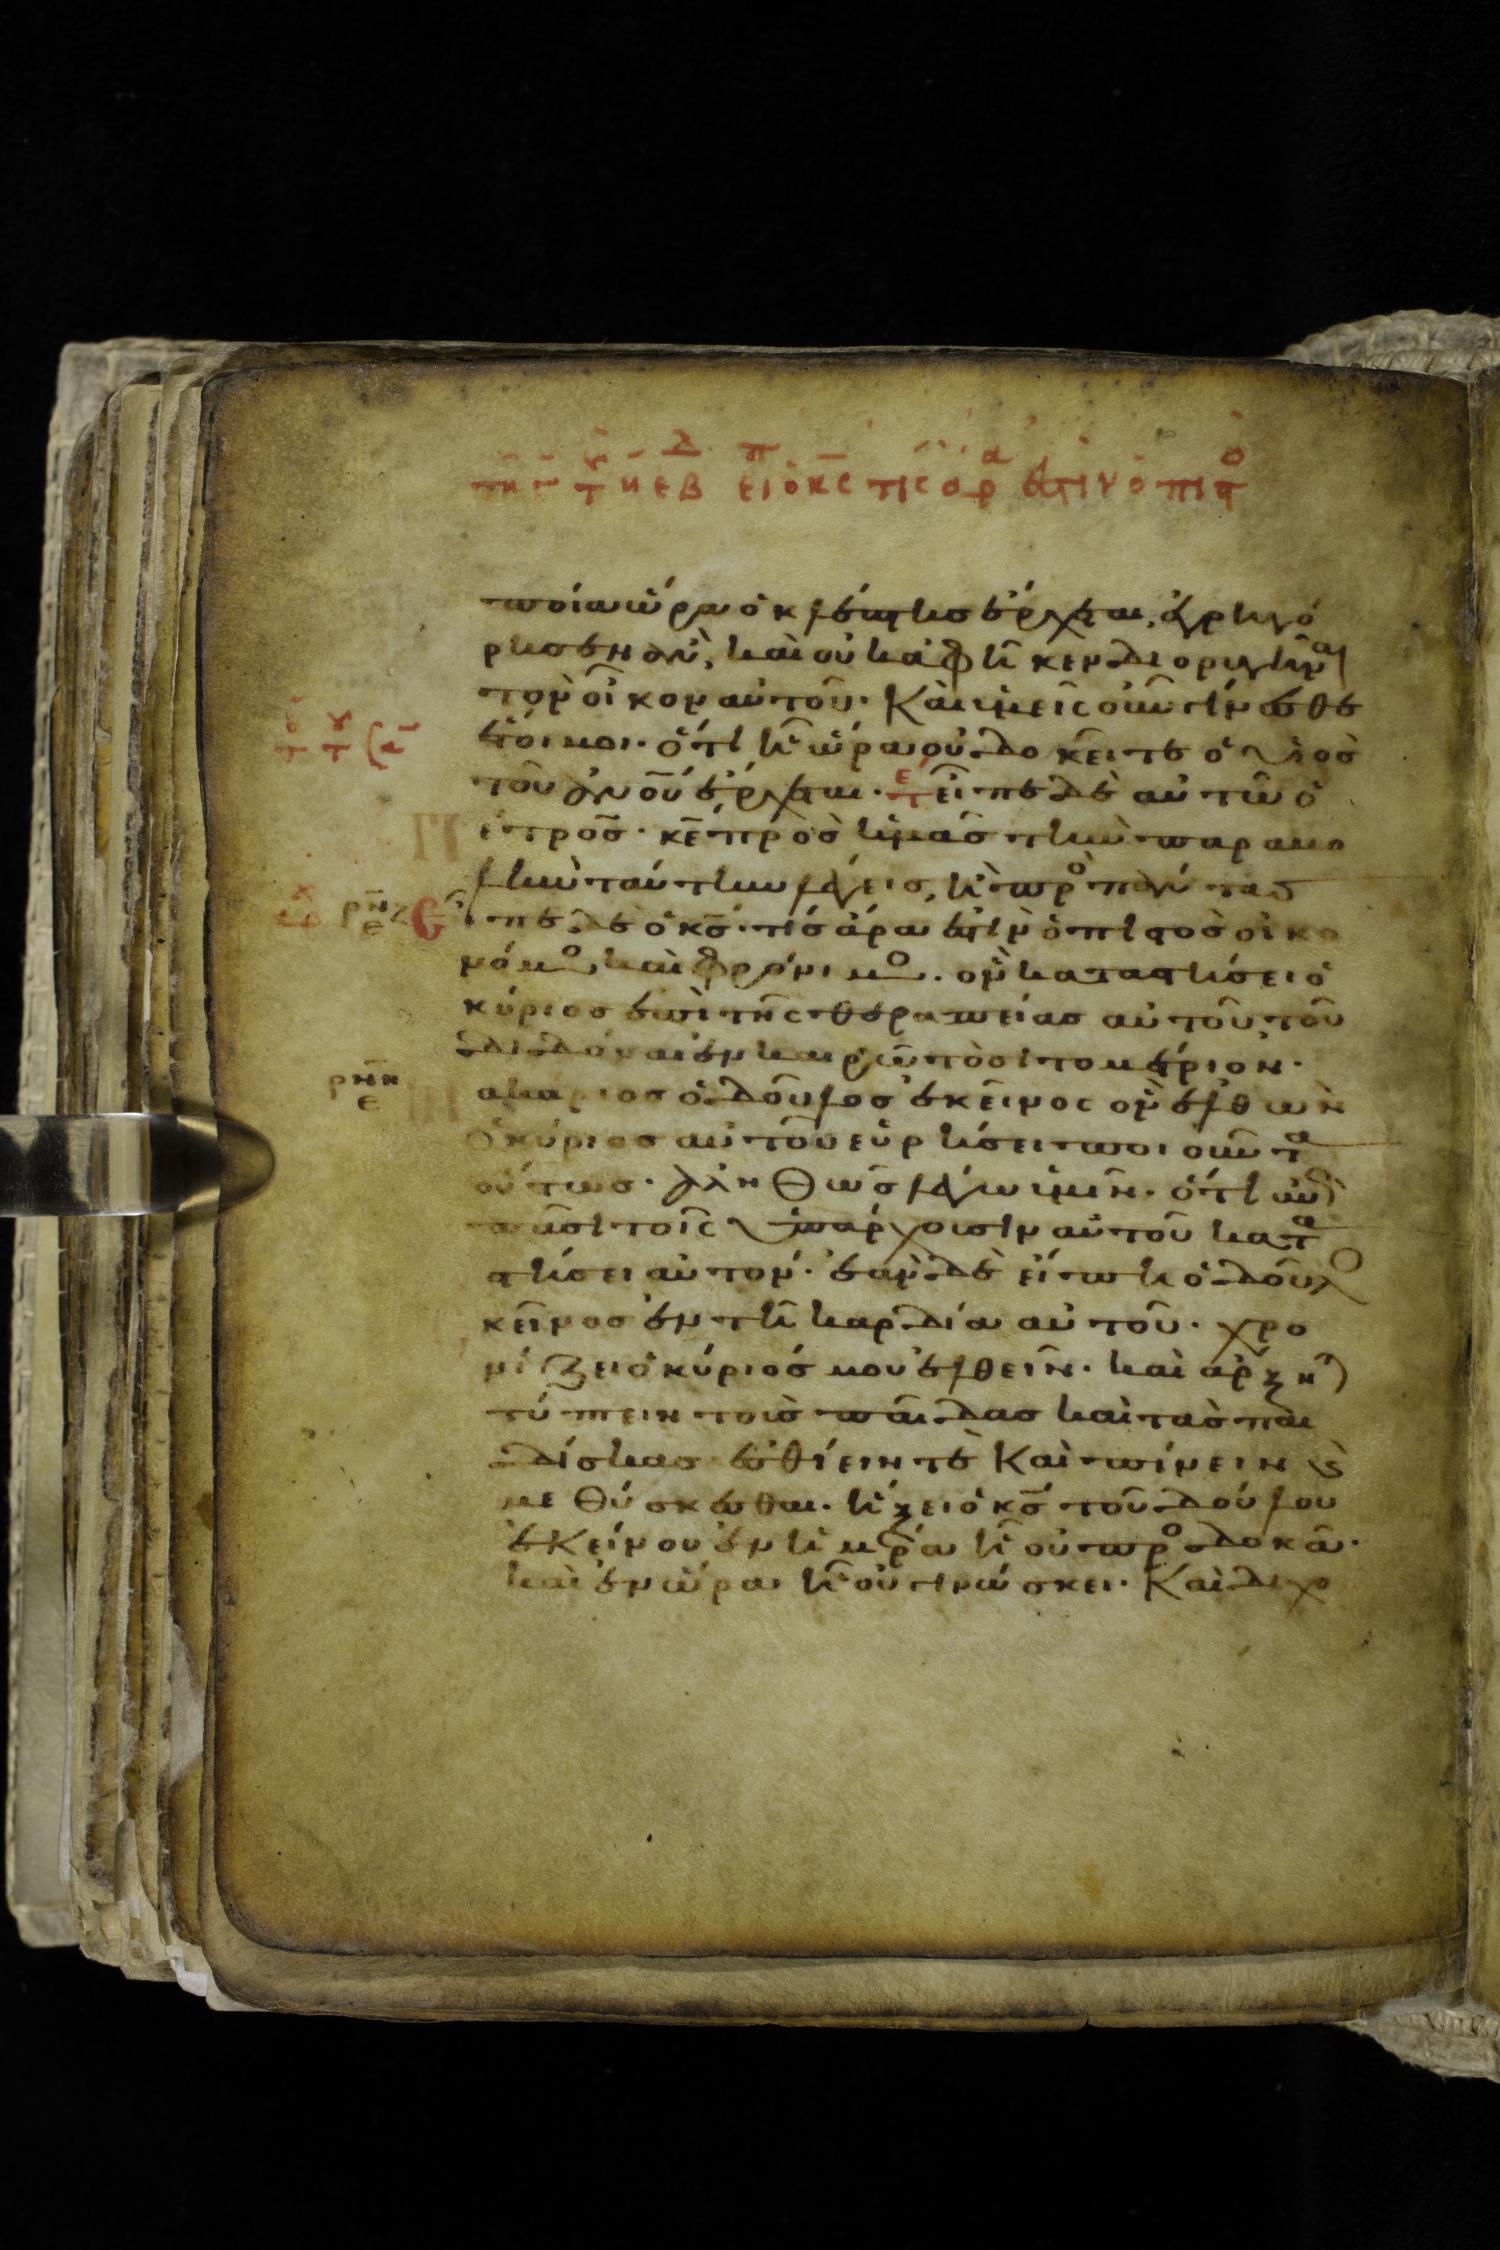 ποία ὥρα ὁ κλέπτησ ἔρχεται, ἐγρηγό
ρησεν ἂν, καὶ οὐκ ἀφῆκεν διορυγῆνα
τὸν οἶκον αὐτοῦ. Καὶ ὑμεῖς οὖν γίνεσθε
ἕτοιμοι. ὅτι ἧ ὥρα οὐ δοκεῖτε ὁ υἱὸσ
τοῦ ἀν̅ου̅ ἔρχεται. τε εἶπε δὲ αὐτῶ ὁ
πέτροσ. κ̅ε̅ πρὸσ ἡμᾶσ τὴν παραβο
λὴν ταύτην λέγεισ, ἢ πρὸ πάντασ
Εἶπε δὲ ὁ κ̅σ̅. τίσ ἄρα ἐστὶν ὁ πιστὸσ οἰκο
νόμο καὶ φρόνιμο. ὃν καταστήσει ὁ
κύριοσ ἐπὶ τῆς θεραπείασ αὐτοῦ τοῦ
διδόναι ἐν καιρῶ τὸ σιτομέτριον.
ακάριοσ ὁ δοῦλοσ ἐκεῖνος ὃν ἐλθὼν
ὁ κύριοσ αὐτοῦ εὑρήσει ποιοῦντα
οὕτωσ. ἀληθῶσ λέγω ὑμῖν. ὅτι
πᾶσι τοῖς ὑπάρχουσιν αὐτοῦ κατα
στήσει αὐτόν. ἐὰν δὲ εἴπη ὁ δοῦλο
κεῖνοσ ἐν τῆ καρδία αὐτοῦ. χρο
νίζει ὁ κύριόσ μου ἐλθεῖν. καὶ ἄρξη
τύπτειν τοὺσ παῖδασ καὶ τὰσ παι
δίσκασ ἐσθίειν τὲ καὶ πίνειν ϗ
μεθύσκεσθαι. ἥξει ὁ κ̅σ̅ τοῦ δούλου
ἐκείνου ἐν ἡμέρα ἧ οὐ προσδοκᾶ.
καὶ ἐν ὥρα ἧ οὐ γινώσκει. Καὶ διχο